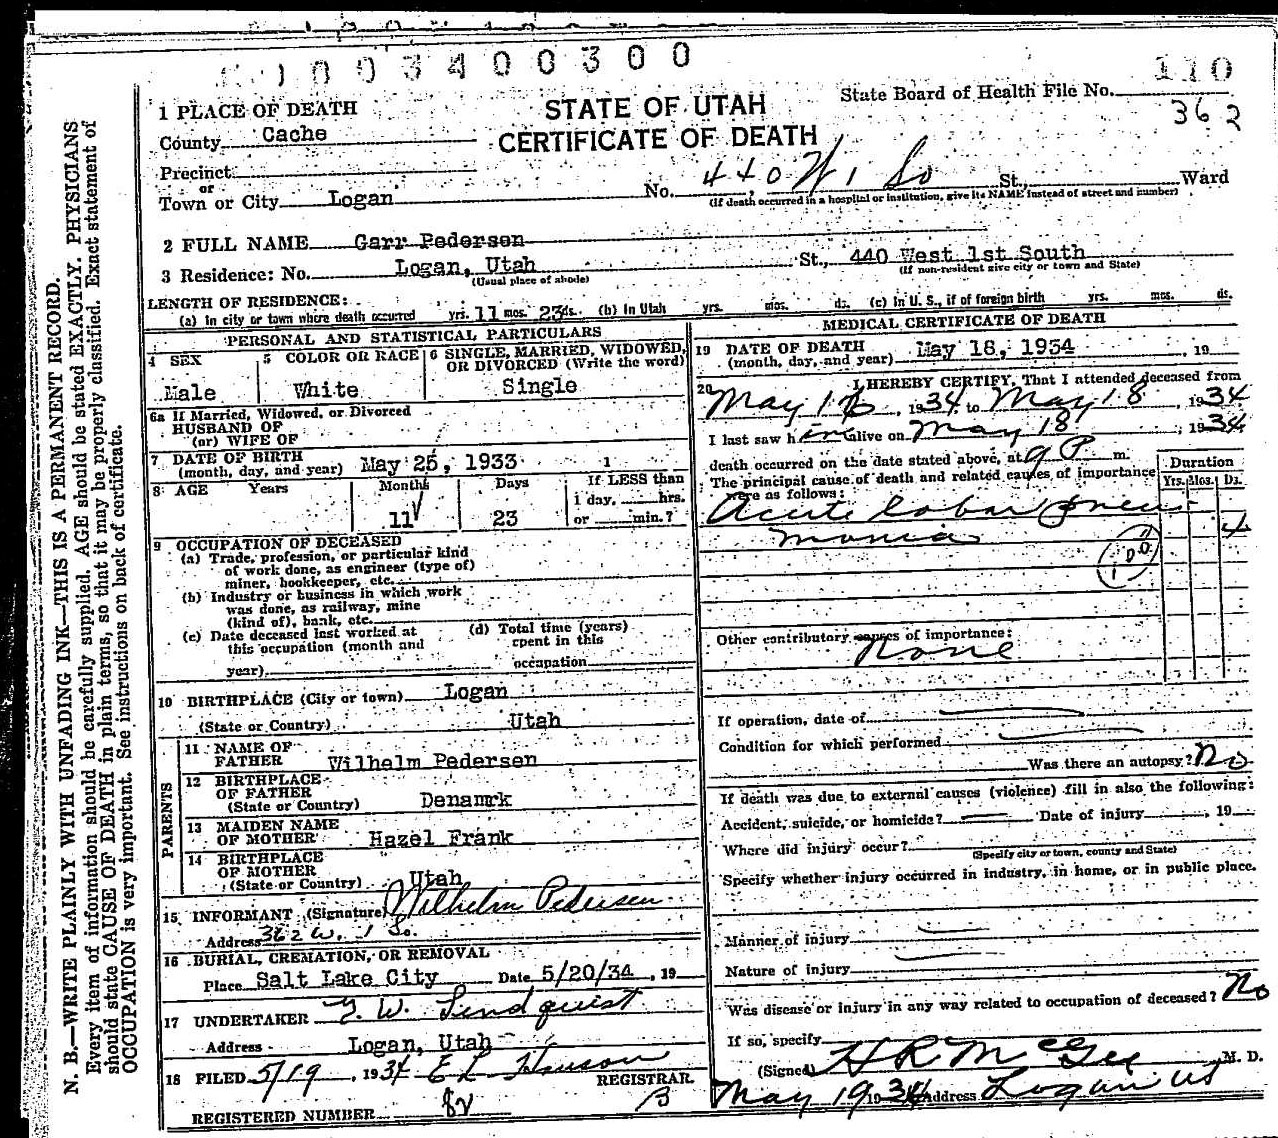 003400300
110
State Board of Health File No.
362
1 PLACE OF DEATH
STATE OF UTAH
CERTIFICATE OF DEATH
County Cache
Precinct
or
Town or City Logan
No. 440 W 1 So St., Ward
(If death occurred in a hospital or institution, give its NAME instead of street and number)
2 FULL NAME Garr Pedersen
3 Residence: No. Logan, Utah St., 440 West 1st South
(Usual place of abode) (If non-resident give city or town and State)
LENGTH OF RESIDENCE:
(a) In city or town where death occurred yrs. 11 mos. 23 ds. (b) In Utah yrs. mos. ds. (c) In U. S., if of foreign birth yrs. mos. ds.
PERSONAL AND STATISTICAL PARTICULARS
4 SEX
Male
5 COLOR OR RACE
White
6 SINGLE, MARRIED, WIDOWED,
OR DIVORCED (Write the word)
Single
6a If Married, Widowed, or Divorced
HUSBAND OF
(or) WIFE OF
7 DATE OF BIRTH
(month, day, and year) May 25, 1933
8 AGE Years Months Days If LESS than
1 day, hrs.
11 23 or min.?
9 OCCUPATION OF DECEASED
(a) Trade, profession, or particular kind
of work done, as engineer (type of)
miner, bookkeeper, etc.
(b) Industry or business in which work
was done, as railway, mine
(kind of), bank, etc.
(c) Date deceased last worked at
this occupation (month and
year)
(d) Total time (years)
spent in this
occupation
10 BIRTHPLACE (City or town) Logan
(State or Country) Utah
PARENTS
11 NAME OF
FATHER Wilhelm Pedersen
12 BIRTHPLACE
OF FATHER
(State or Country) Denamrk
13 MAIDEN NAME
OF MOTHER Hazel Frank
14 BIRTHPLACE
OF MOTHER
(State or Country) Utah
15 INFORMANT (Signature) Wilhelm Pedersen
Address 362 W. 1 So.
16 BURIAL, CREMATION, OR REMOVAL
Place Salt Lake City Date 5/20/34, 19
17 UNDERTAKER W. Lindquist
Address Logan, Utah
18 FILED 5/19, 1934 E L Hanson
REGISTRAR
REGISTERED NUMBER 82
MEDICAL CERTIFICATE OF DEATH
19 DATE OF DEATH
(month, day, and year) May 18, 1934, 19
20 I HEREBY CERTIFY, That I attended deceased from
May 16, 1934 to May 18, 1934
I last saw him alive on May 18, 1934
death occurred on the date stated above, at 9 P m.
The principal cause of death and related causes of importance
were as follows:
Duration
Yrs. Mos. Ds.
Acute lobar pneu
monia 4
Other contributory causes of importance:
None
If operation, date of
Condition for which performed
Was there an autopsy? No
If death was due to external causes (violence) fill in also the following:
Accident, suicide, or homicide? Date of injury, 19
Where did injury occur?
(Specify city or town, county and State)
Specify whether injury occurred in industry, in home, or in public place.
Manner of injury
Nature of injury
Was disease or injury in any way related to occupation of deceased? No
If so, specify
(Signed) H R McGee M. D.
May 19 1934 Address Logan Ut
N. B.—WRITE PLAINLY WITH UNFADING INK—THIS IS A PERMANENT RECORD.
Every item of information should be carefully supplied. AGE should be stated EXACTLY. PHYSICIANS
should state CAUSE OF DEATH in plain terms, so that it may be properly classified. Exact statement of
OCCUPATION is very important. See instructions on back of certificate.